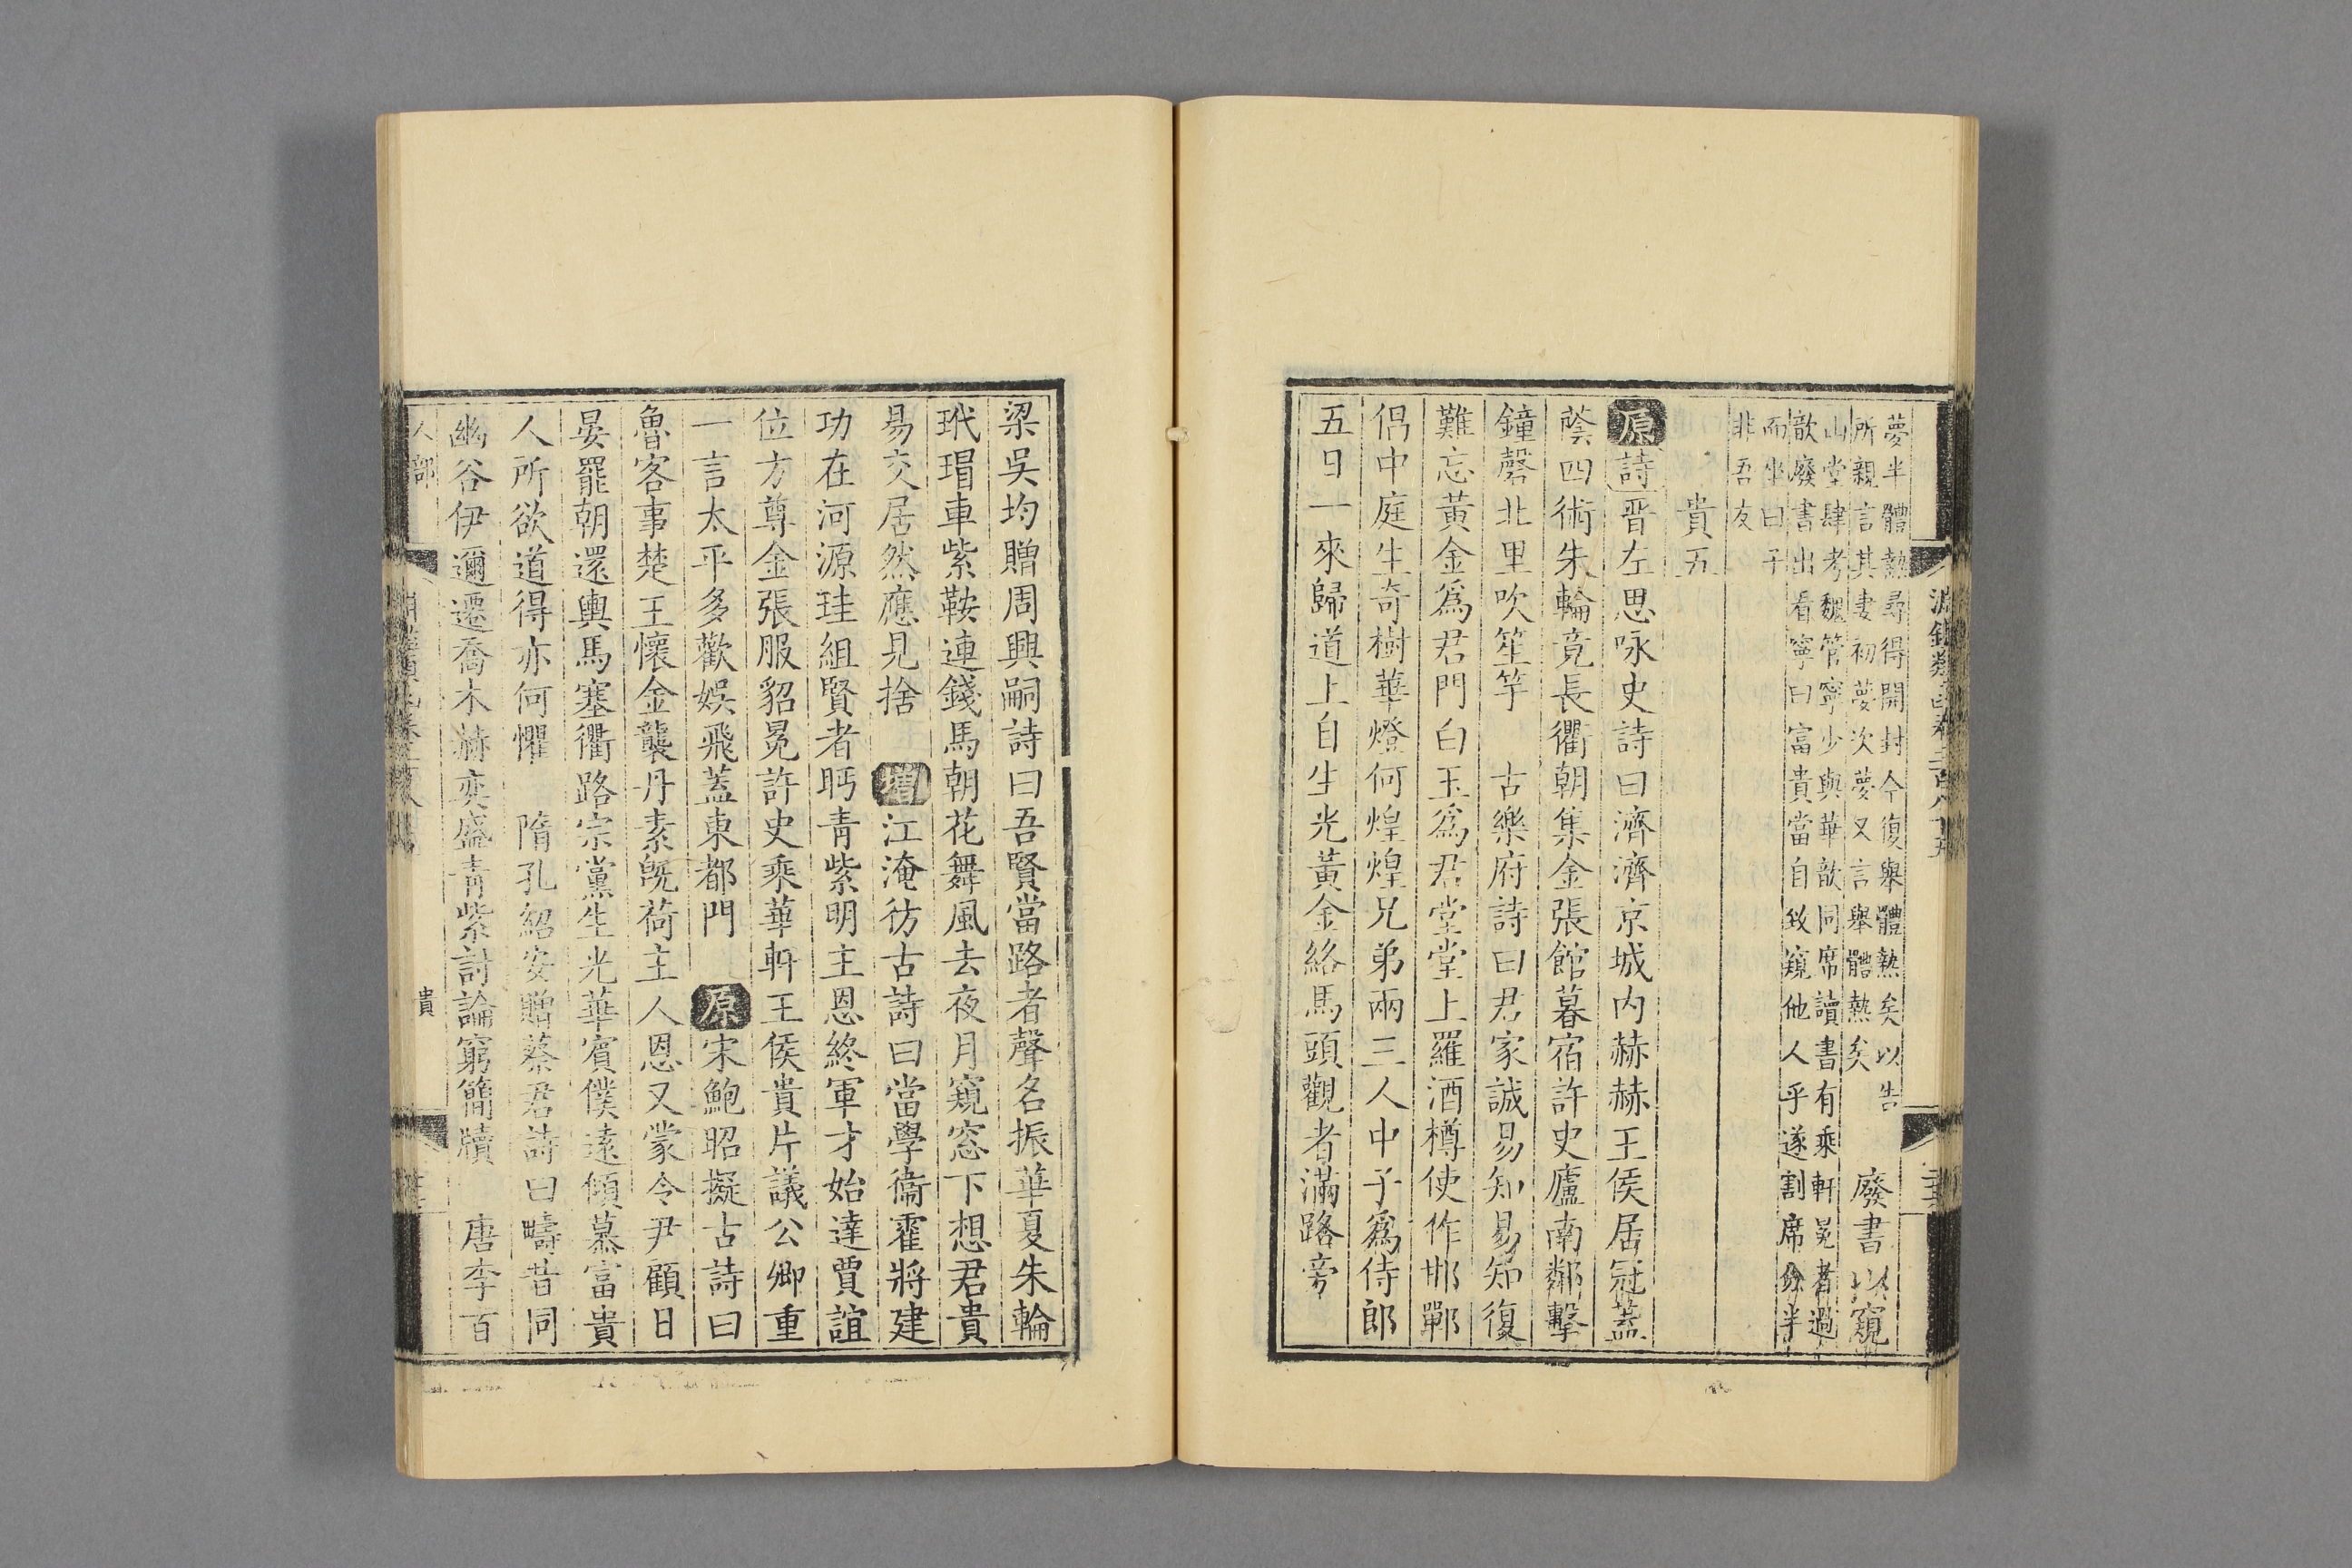 夢半體熱尋得開封今復舉體熱矣以告
所親言其妻初夢次夢又言舉體熱矣
廢書以窺
山堂肆考魏管寧少與華歆同席讀書有乘軒冕者過
歆廢書出看寧曰富貴當自致窺他人乎遂割席分半
而坐曰子
非吾友
貴五
原詩晉左思咏史詩曰濟濟京城內赫赫王侯居冠蓋
蔭四術朱輪竟長衢朝集金張館暮宿許史廬南鄰擊
鐘磬北里吹笙竽 古樂府詩曰君家誠易知易知復
難忘黃金爲君門白玉爲君堂堂上羅酒樽使作邯鄲
倡中庭生奇樹華燈何煌煌兄弟兩三人中子爲侍郎
五日一來歸道上自生光黃金絡馬頭觀者滿路旁
梁吳均贈周興嗣詩曰吾賢當路者聲名振華夏朱輪
玳瑁車紫鞍連錢馬朝花舞風去夜月窺窓下想君貴
易交居然應見捨 增江淹彷古詩曰當學衞霍將建
功在河源珪組賢者眄青紫明主恩終軍才始達賈誼
位方尊金張服貂冕許史乘華軒王侯貴片議公卿重
一言太平多歡娛飛蓋東都門 原宋鮑昭擬古詩曰
魯客事楚王懷金襲丹素旣荷主人恩又蒙令尹顧日
晏罷朝還輿馬塞衢路宗黨生光華賓僕遠傾慕富貴
人所欲道得亦何懼 隋孔紹安贈蔡君詩曰疇昔同
幽谷伊邇遷喬木赫奕盛青紫討論窮簡牘 唐李百
人部
貴